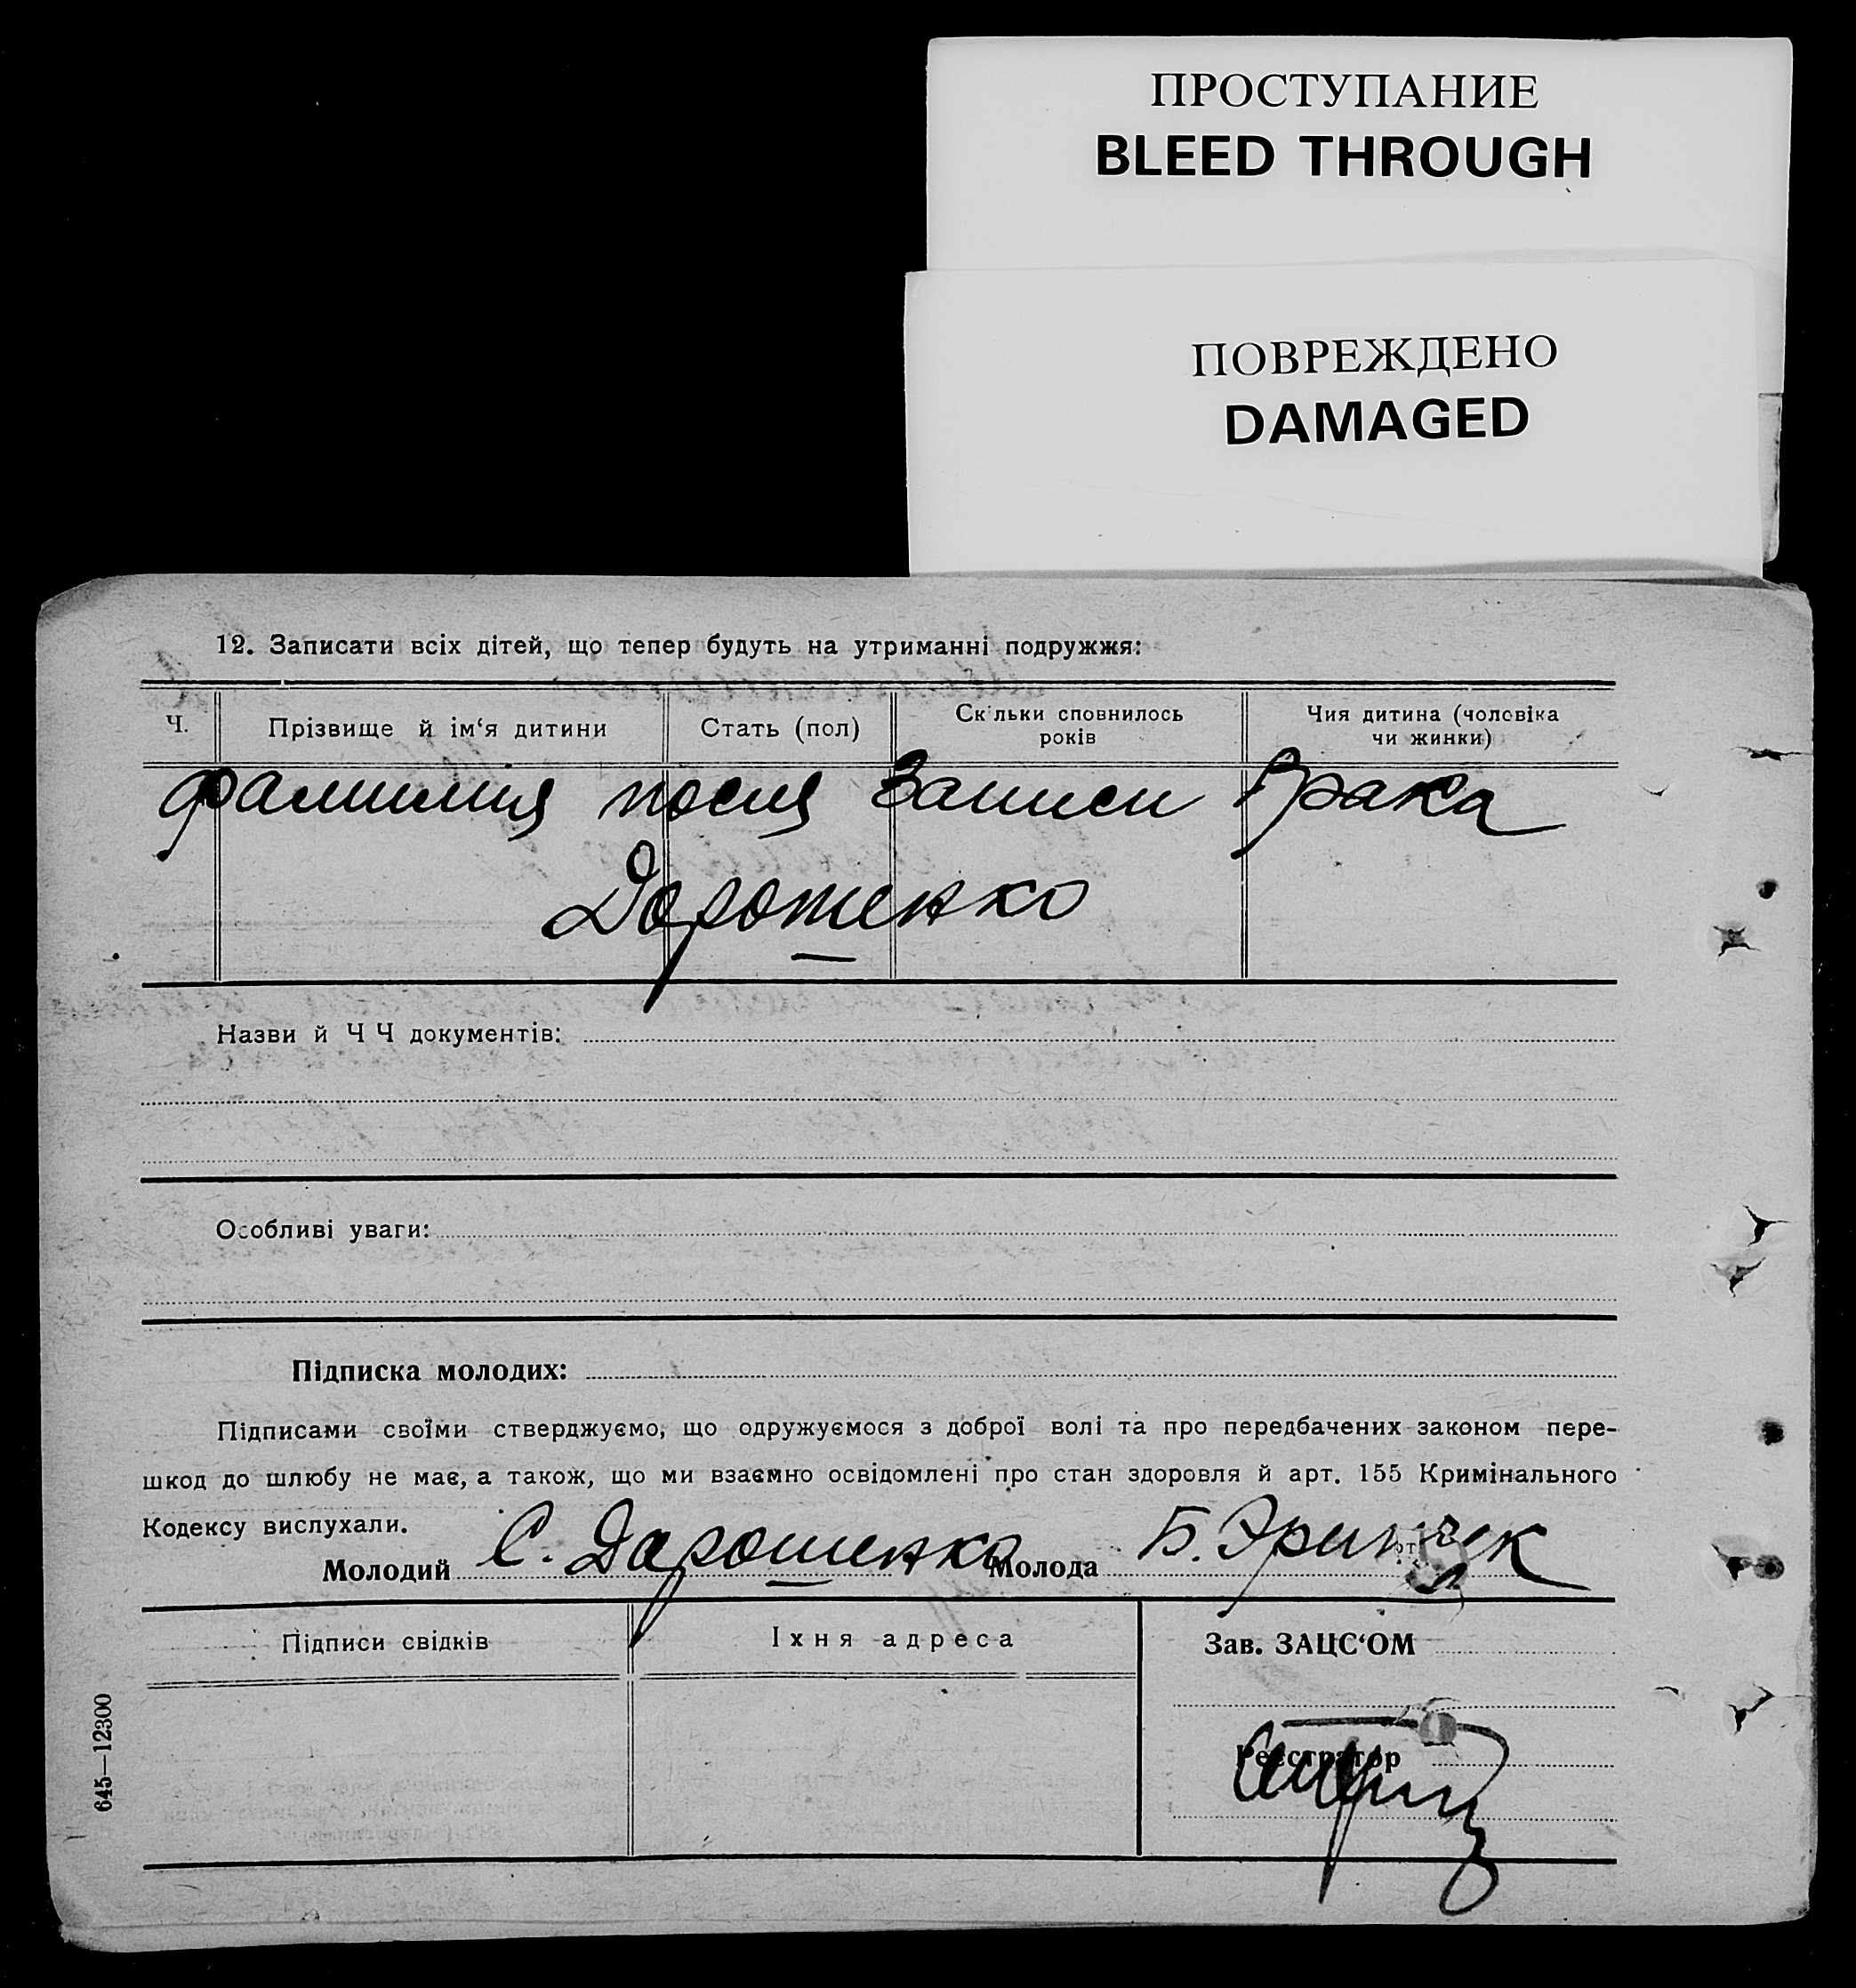 ПРОСТУПАНИЕ
BLEED THROUGH
ПОВРЕЖДЕНО
DAMAGED
12. Записати всіх дітей, що тепер будуть на утриманні подружжя:
Ч. Прізвище й ім‘я дитини Стать (пол) Скільки сповнилось років Чия дитина (чоловіка чи жинки)
фамилия посля Записи Брака
Дорошенко
Назви й Ч Ч документів:
Особливі уваги:
Підписка молодих:
Підписами своїми стверджуємо, що одружуємося з доброї волі та про передбачених законом пере-
шкод до шлюбу не має, а також, що ми взаємно освідомлені про стан здоровля й арт. 155 Кримінального
Кодексу вислухали.
Молодий С. Дорошенко Молода Б.
Підписи свідків Іхня адреса Зав. ЗАЦС‘ОМ
Реєстратор
645—12300